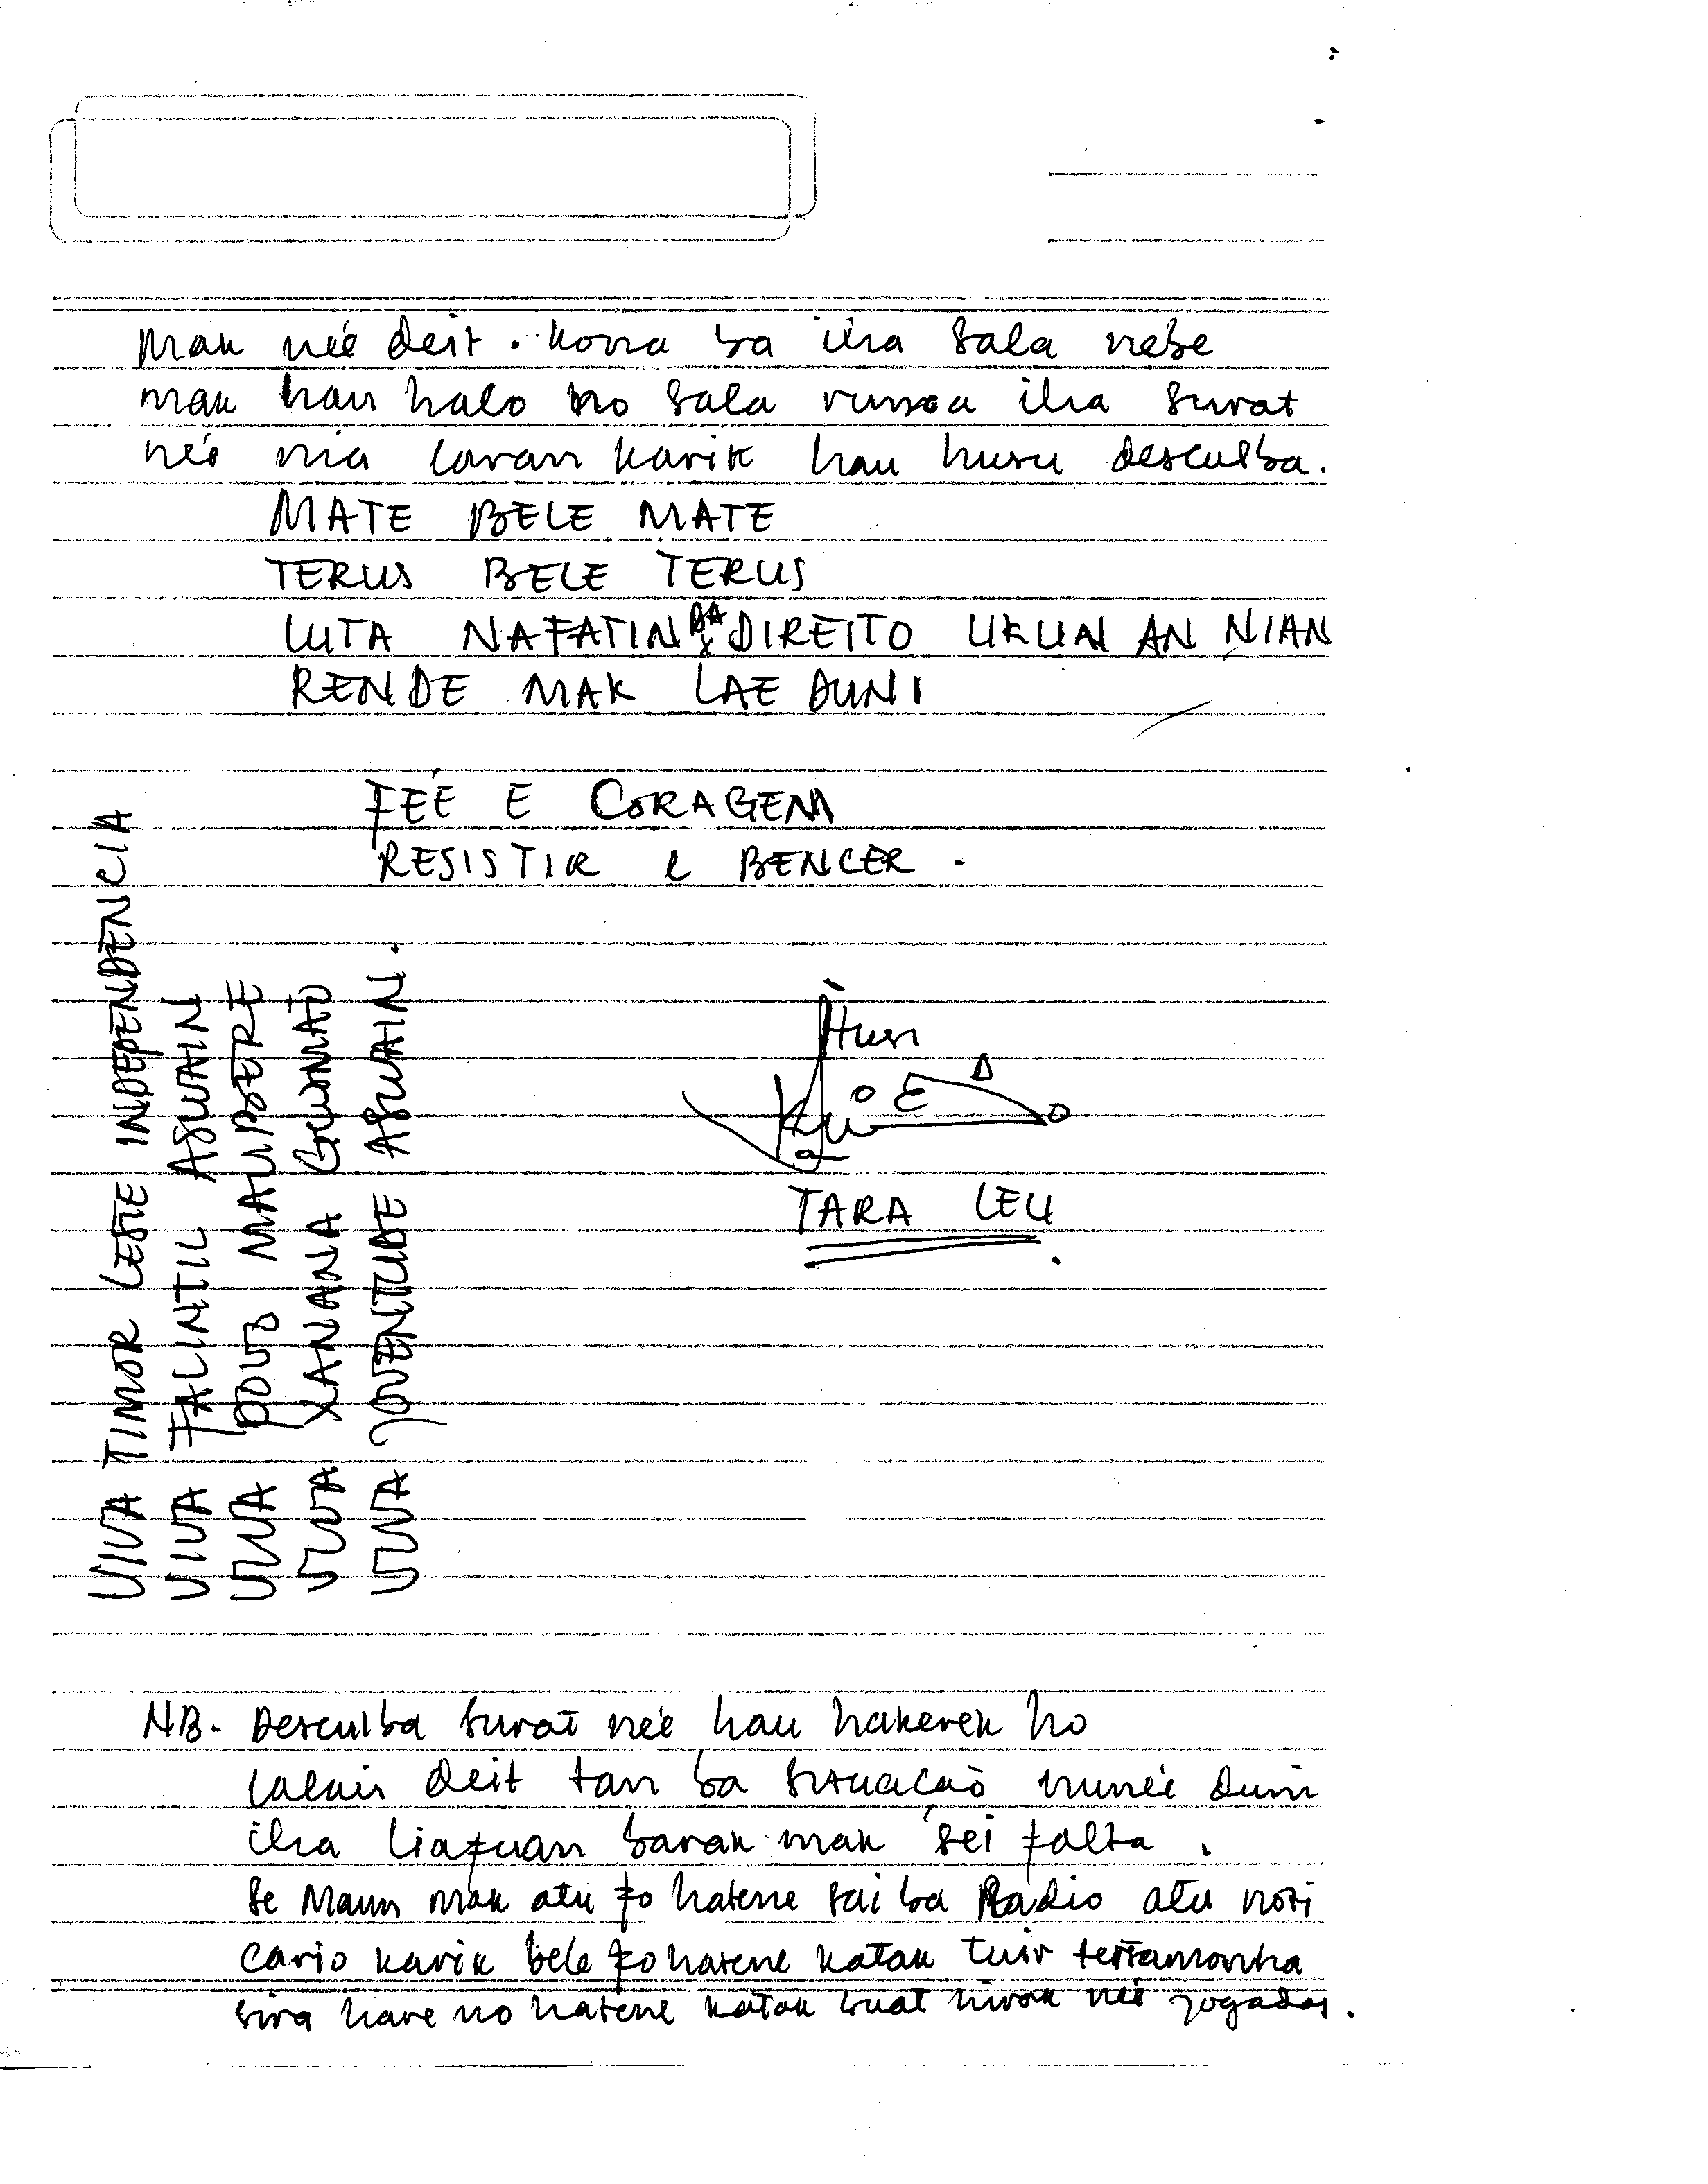 mak neé deit. Kona ba iha sala nebe
mak hau halo no sala rumoa iha surat
neé nia laran karik hau husu desculba.
MATE BELE MATE
TERUS BELE TERUS
LUTA NAFATIN BA DIREITO UKUAN AN NIAN
RENDE MAK LAE DUNI
FEÉ E CORAGEM
RESISTIR e BENCER.
Husi
TARA LEU
VIVA TIMOR LESTE INDEPENDENCIA
VIVA FALINTIL ASUAIN
VIVA POVO MAUBERE
VIVA XANANA GUSMAÕ
VIVA JOVENTUDE ASUAIN.
NB. Desculba surat neé hau hakerek ho
lalais deit tan ba situacaõ nuneé duni
iha liafuan barak mak sei falta.
Se Maun mak atu fo hatene sai ba Radio atu noti
cario karik bele fo hatene katak tuir testamonha
sira hare no hatene katak buat hirak neé jogadas.